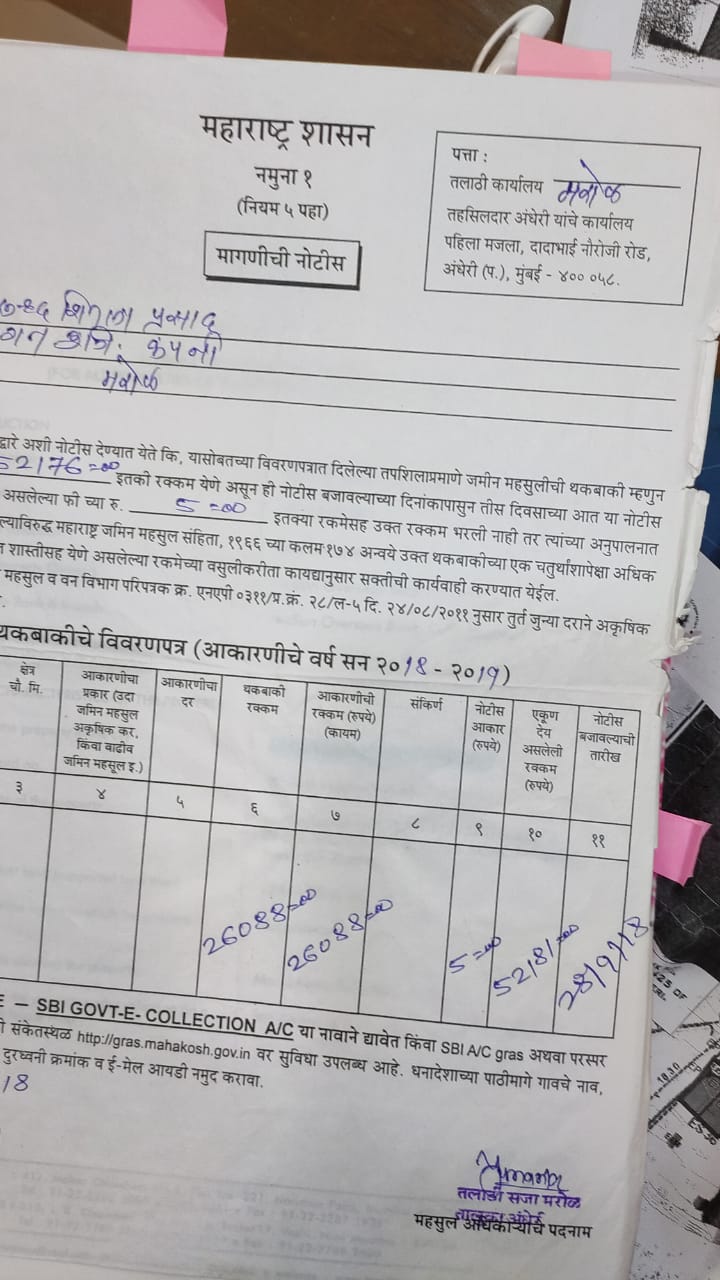 महाराष्ट्र शासन
नमुना १
(नियम ५ पहा)
मागणीची नोटीस
पत्ता :
तलाठी कार्यालय मरोळ
तहसिलदार अंधेरी यांचे कार्यालय
पहिला मजला, दादाभाई नौरोजी रोड,
अंधेरी (प.), मुंबई - ४०० ०५८.
प्रसाद
कंपनी
मरोळ
द्वारे अशी नोटीस देण्यात येते कि, यासोबतच्या विवरणपत्रात दिलेल्या तपशिलाप्रमाणे जमीन महसुलीची थकबाकी म्हणुन
52176=00 इतकी रक्कम येणे असून ही नोटीस बजावल्याच्या दिनांकापासुन तीस दिवसाच्या आत या नोटीस
असलेल्या फी च्या रु. 5=00 इतक्या रकमेसह उक्त रक्कम भरली नाही तर त्यांच्या अनुपालनात
ल्याविरुद्ध महाराष्ट्र जमिन महसुल संहिता, १९६६ च्या कलम १७४ अन्वये उक्त थकबाकीच्या एक चतुर्थांशापेक्षा अधिक
शास्तीसह येणे असलेल्या रकमेच्या वसुलीकरीता कायद्यानुसार सक्तीची कार्यवाही करण्यात येईल.
महसुल व वन विभाग परिपत्रक क्र. एनएपी ०३११/प्र.क्रं. २८/ल-५ दि. २४/०८/२०११ नुसार तुर्त जुन्या दराने अकृषिक
थकबाकीचे विवरणपत्र (आकारणीचे वर्ष सन २०18 - २०19)
क्षेत्र चौ. मि.
आकारणीचा प्रकार (उदा जमिन महसुल अकृषिक कर, किंवा वाढीव जमिन महसूल इ.)
आकारणीचा दर
थकबाकी रक्कम
आकारणीची रक्कम (रुपये) (कायम)
संकिर्ण
नोटीस आकार (रुपये)
एकूण देय असलेली रक्कम (रुपये)
नोटीस बजावल्याची तारीख
३ ४ ५ ६ ७ ८ ९ १० ११
26088=00 26088=00 5=00 52181=00 28/9/18
– SBI GOVT-E- COLLECTION A/C या नावाने द्यावेत किंवा SBI A/C gras अथवा परस्पर
संकेतस्थळ http://gras.mahakosh.gov.in वर सुविधा उपलब्ध आहे. धनादेशाच्या पाठीमागे गावचे नाव,
दुरध्वनी क्रमांक व ई-मेल आयडी नमुद करावा.
18
तलाठी सजा मरोळ
तालुका अंधेरी
महसुल अधिकाऱ्याचे पदनाम